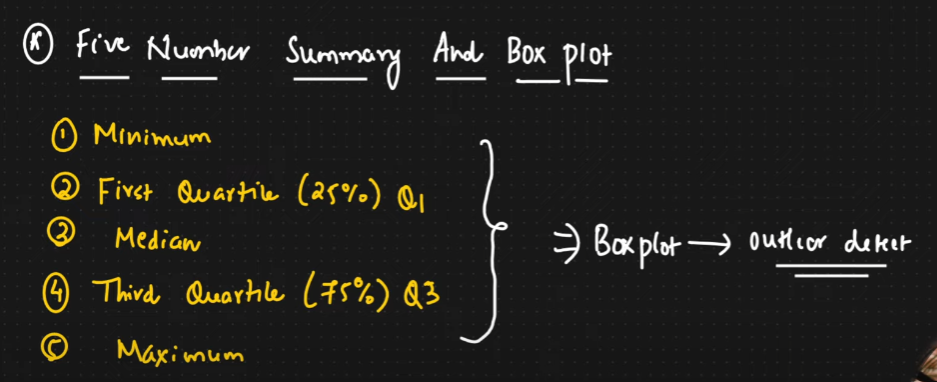 * Five Number Summary And Box plot
① Minimum
② First Quartile (25%) Q1
③ Median
④ Third Quartile (75%) Q3
⑤ Maximum
⇒ Boxplot → outlier detect